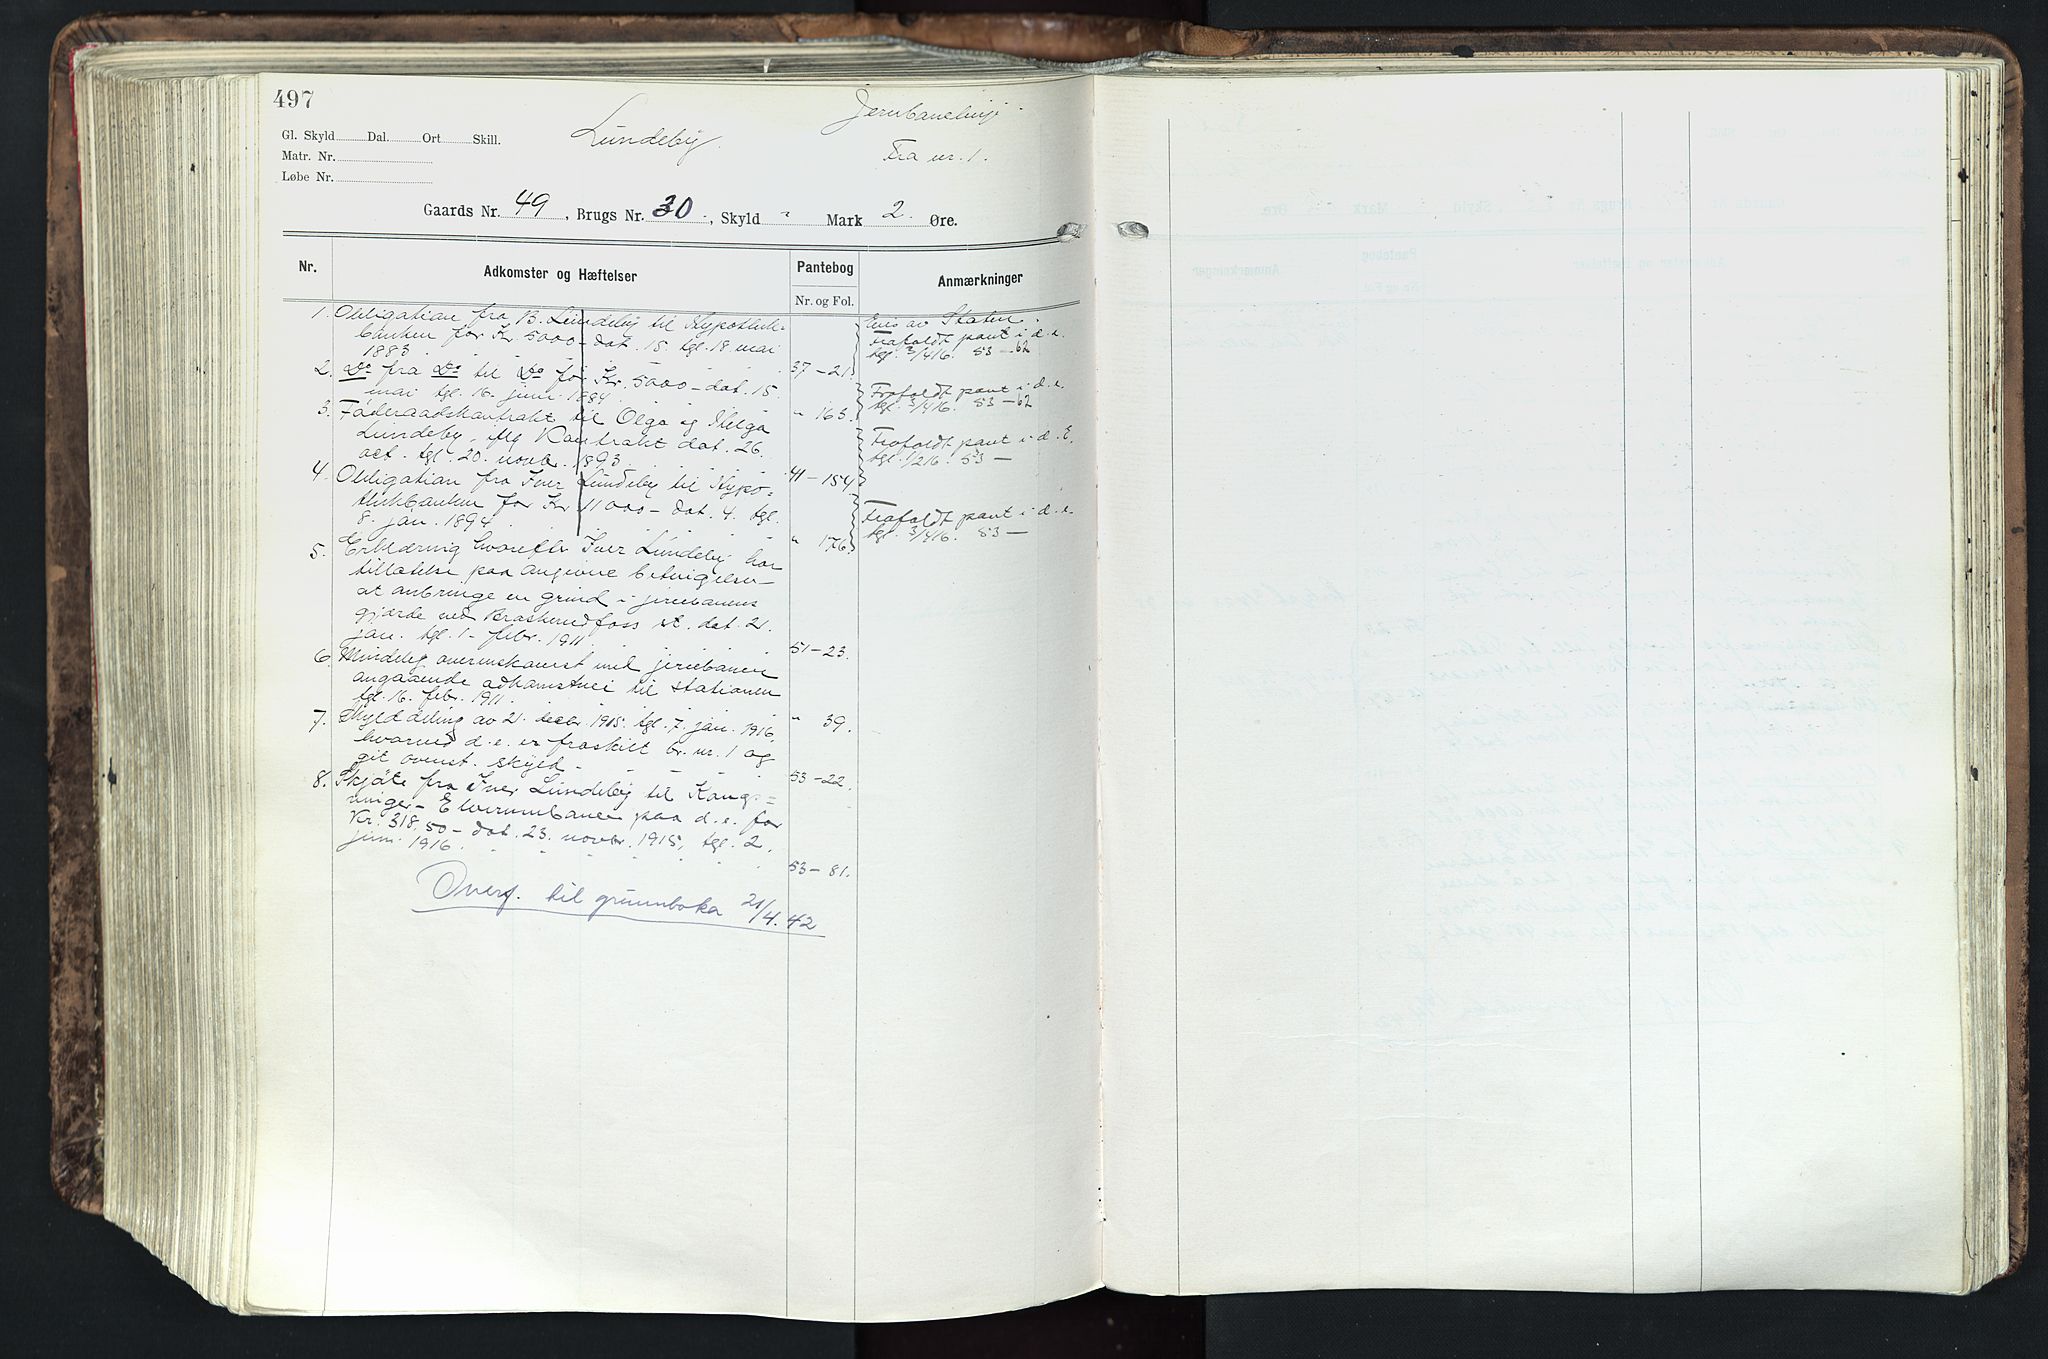 497
Jernbanelinje
Gl. Skyld Dal. Ort Skill.
Lundeby.
Matr. Nr.
Fra nr. 1.
Løbe Nr.
Gaards Nr. 49, Brugs Nr. 30, Skyld - Mark 2 Øre.
Nr. Adkomster og Hæftelser Pantebog Anmærkninger
Nr. og Fol.
1. Obligation fra B. Lundeby til Hypothek-
banken for Kr. 5000 - dat. 15. tgl. 18. mai
1883. 37 - 21.
Eies av Staten.
Frafaldt pant i d. e.
tgl. 3/4 16. 53 - 62
2. Do fra Do til Do for Kr. 5000 - dat. 15.
mai tgl. 16. juni 1884. " 163.
Frafaldt pant i d. e.
tgl. 3/4 16. 53 - 62
3. Føderaadskontrakt til Olga og Helga
Lundeby, iflg Kontrakt dat. 26.
oct. tgl. 20. novbr. 1893. 41 - 154
Frafaldt pant i d. E.
53 -
4. Obligation fra Iver Lundeby til Hypo=
thekbanken for Kr 11000 - dat. 4. tgl.
8. jan. 1894. " 176.
Frafaldt pant i d. e.
tgl. 3/4 16. 53 -
5. Erklæring hvorefter Iver Lundeby har
tillatelse paa angivne betingelser
at anbringe en grind i jernbanens
gjærde ved Braskerudfoss st. dat. 21.
jan. tgl. 1. febr. 1911. 51 - 23.
6. Mindelig overenskomst med jernbanen
angaaende adkomstvei til stationen
tgl. 16. febr. 1911. " 39.
7. Skylddeling av 21. decbr. 1915. tgl. 7. jan. 1916,
hvorved d. e. er fraskilt br. nr. 1 og
git ovenst. skyld. 53 - 22.
8. Skjøte fra Iver Lundeby til Kongs=
vinger - Elverumbanen paa d. e. for
Kr. 318,50 - dat. 23. novbr. 1915, tgl. 2.
juni 1916. 53 - 81.
Overf. til grunnboka 21/4.42